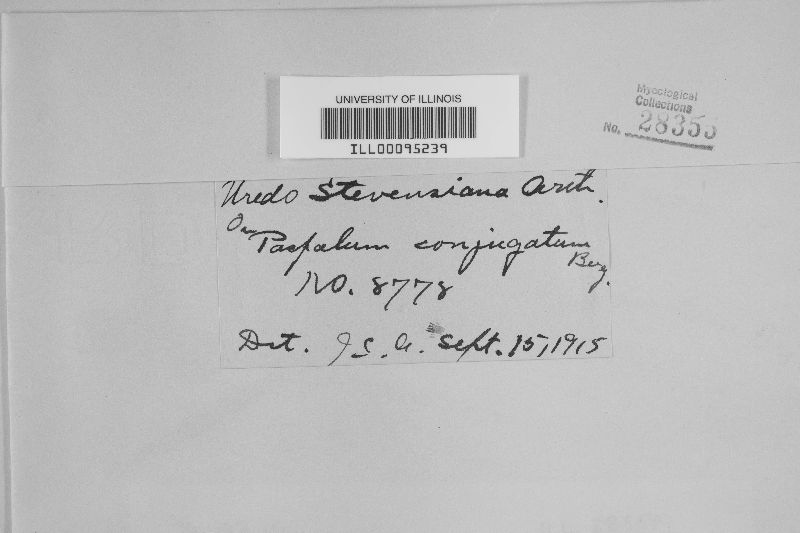 UNIVERSITY OF ILLINOIS
ILL00095239
Mycological
Collections
No. 28355
Uredo Stevensiana Arth.
On Paspalum conjugatum Berg.
NO. 8778
Det. J.C.A. Sept. 15, 1915